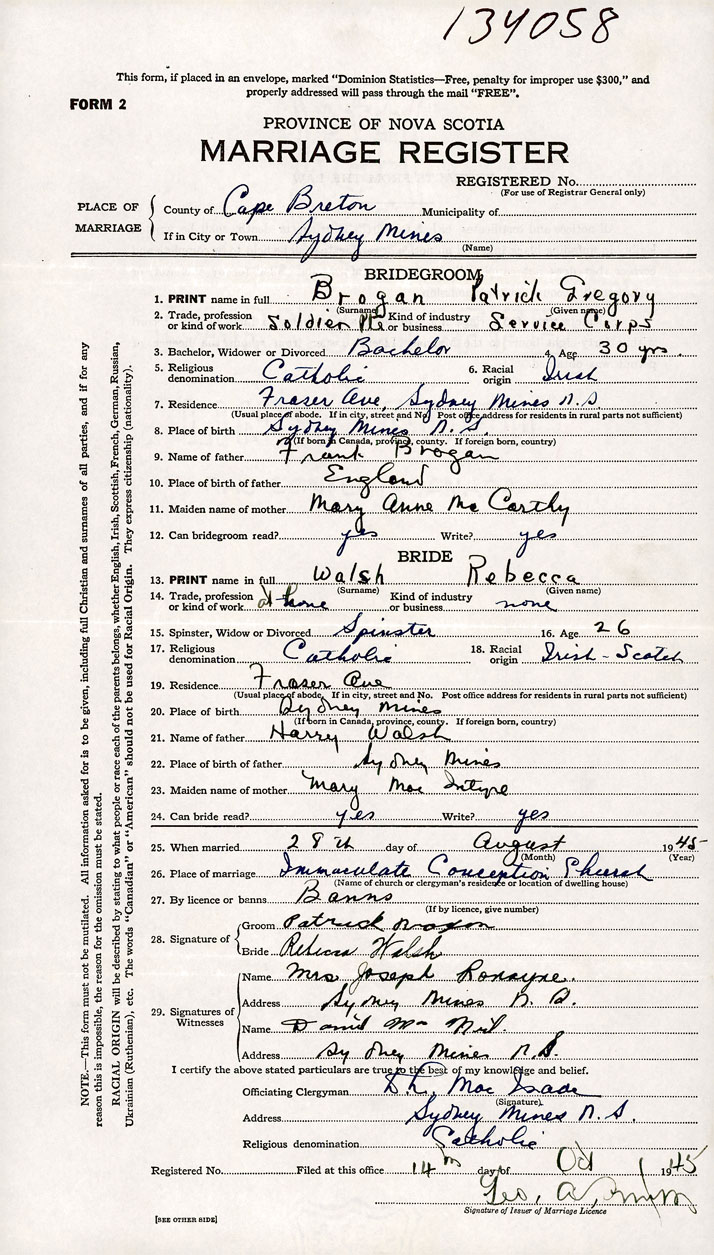 134058
This form, if placed in an envelope, marked "Dominion Statistics—Free, penalty for improper use $300," and
properly addressed will pass through the mail "FREE".
FORM 2
PROVINCE OF NOVA SCOTIA
MARRIAGE REGISTER
REGISTERED No.
(For use of Registrar General only)
PLACE OF MARRIAGE
County of Cape Breton Municipality of
If in City or Town Sydney Mines
(Name)
BRIDEGROOM
1. PRINT name in full Brogan Patrick Gregory
(Surname) (Given name)
2. Trade, profession or kind of work Soldier Pte Kind of industry or business Service Corps
3. Bachelor, Widower or Divorced Bachelor 4. Age 30 yrs.
5. Religious denomination Catholic 6. Racial origin Irish
7. Residence Fraser Ave, Sydney Mines N.S
(Usual place of abode. If in city, street and No. Post office address for residents in rural parts not sufficient)
8. Place of birth Sydney Mines N.S
(If born in Canada, province, county. If foreign born, country)
9. Name of father Frank Brogan
10. Place of birth of father England
11. Maiden name of mother Mary Anne Mc Carthy
12. Can bridegroom read? yes Write? yes
BRIDE
13. PRINT name in full Walsh Rebecca
(Surname) (Given name)
14. Trade, profession or kind of work at home Kind of industry or business none
15. Spinster, Widow or Divorced Spinster 16. Age 26
17. Religious denomination Catholic 18. Racial origin Irish-Scotch
19. Residence Fraser Ave
(Usual place of abode. If in city, street and No. Post office address for residents in rural parts not sufficient)
20. Place of birth Sydney Mines
(If born in Canada, province, county. If foreign born, country)
21. Name of father Harry Walsh
22. Place of birth of father Sydney Mines
23. Maiden name of mother Mary Mac Intyre
24. Can bride read? yes Write? yes
25. When married 28th day of August 1945
(Month) (Year)
26. Place of marriage Immaculate Conception Church
(Name of church or clergyman's residence or location of dwelling house)
27. By licence or banns Banns
(If by licence, give number)
28. Signature of
Groom Patrick Brogan
Bride Rebecca Walsh
29. Signatures of Witnesses
Name Mrs Joseph Ronayne.
Address Sydney Mines N.S.
Name David Mc
Address Sydney Mines N.S.
I certify the above stated particulars are true to the best of my knowledge and belief.
Officiating Clergyman Mac Isaac
(Signature)
Address Sydney Mines N.S.
Religious denomination Catholic
Registered No. Filed at this office 14th day of Oct 1945
Geo. A.
Signature of Issuer of Marriage Licence
[SEE OTHER SIDE]
NOTE.—This form must not be mutilated. All information asked for is to be given, including full Christian and surnames of all parties, and if for any
reason this is impossible, the reason for the omission must be stated.
RACIAL ORIGIN will be described by stating to what people or race each of the parents belongs, whether English, Irish, Scottish, French, German, Russian,
Ukrainian (Ruthenian), etc. The words "Canadian" or "American" should not be used for Racial Origin. They express citizenship (nationality).